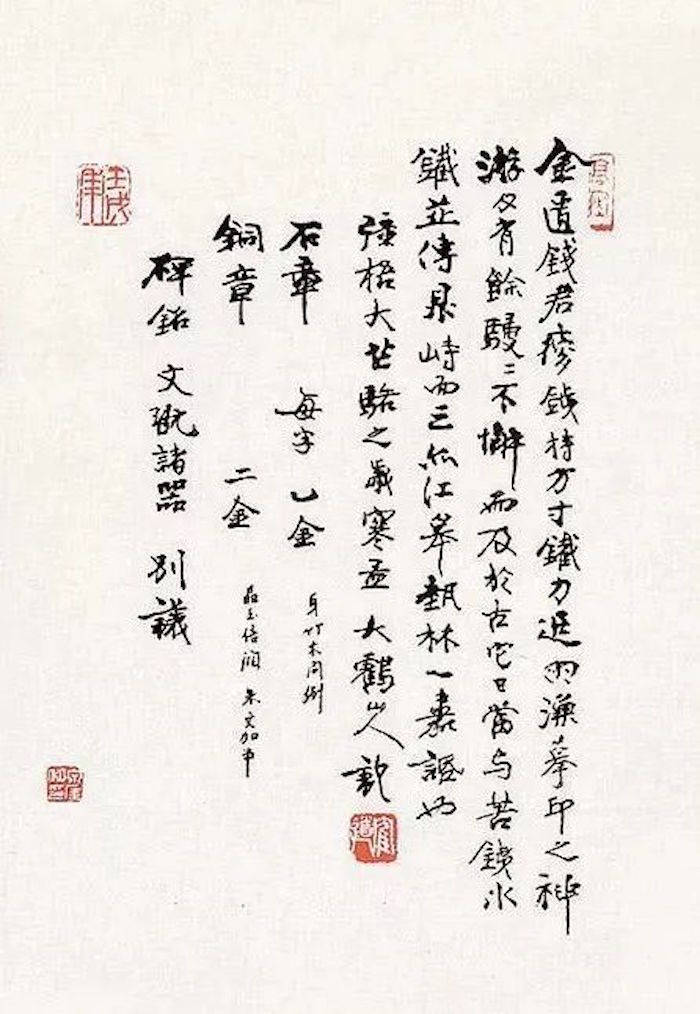 金匱錢君瘦鐵持方寸鐵力追兩漢摹印之神
游刃有餘駸〻不懈而及於古它日當与苦鐵冰
鐵並傳鼎峙而三爲江皋藝林一嘉話也
彊梧大芒駱之歲寒孟 大鶴山人
石章 每字乙金 牙竹木同例
銅章 二金 晶玉倍潤 朱文加半
碑銘 文玩諸器 別議